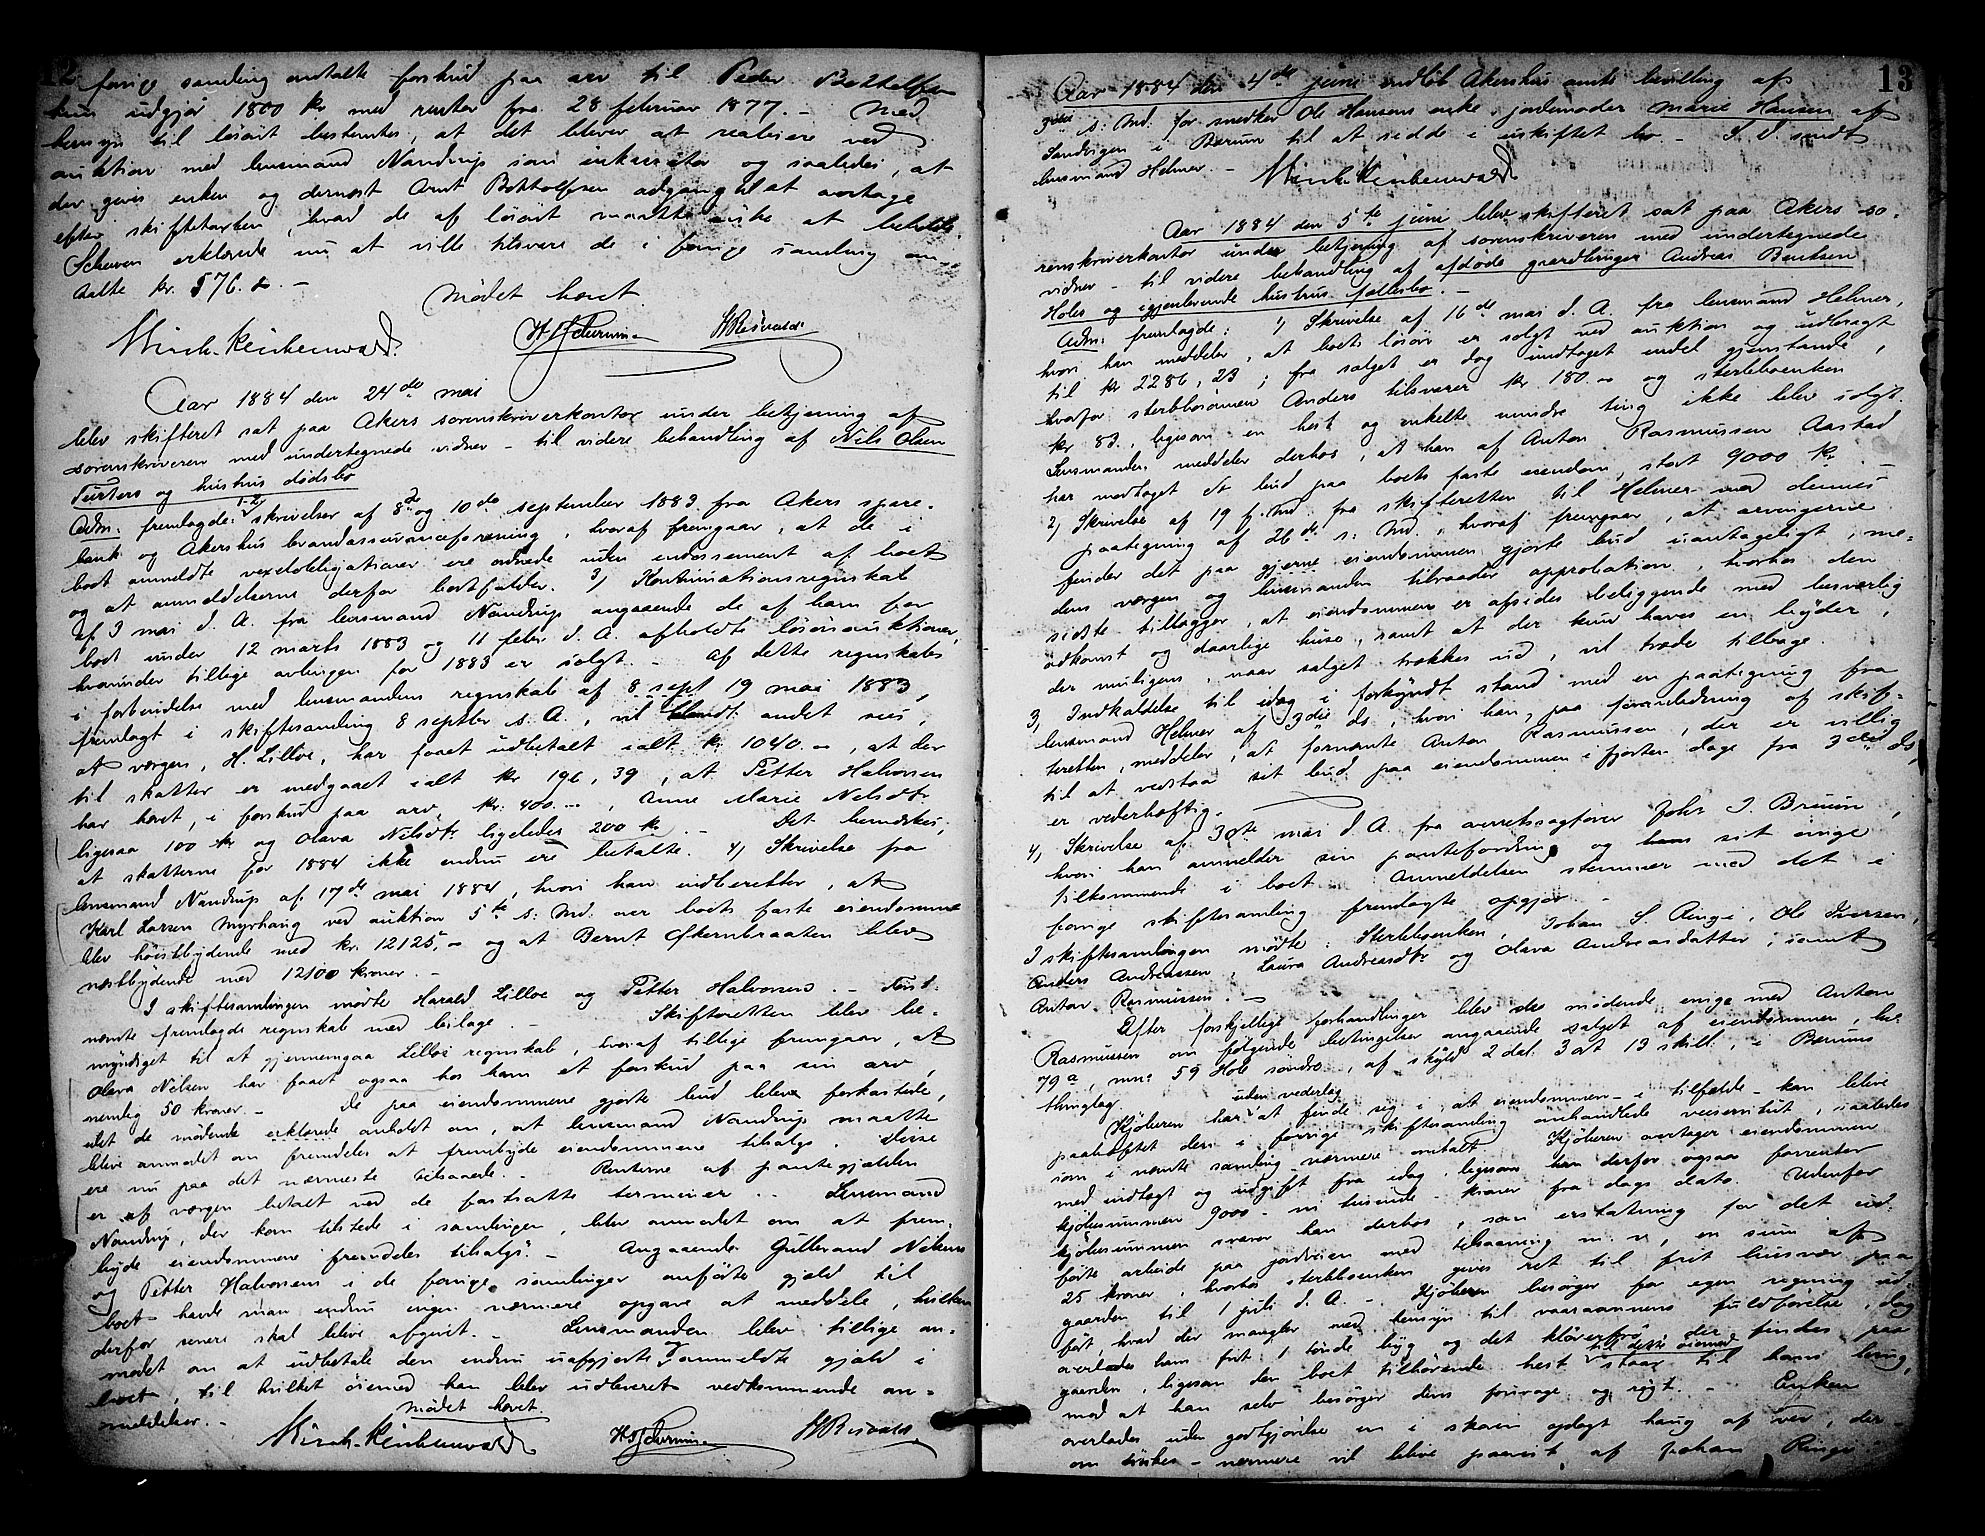 12
forrige samling omtalte forskud paa arv til Peder Bottolfsen
kun udgjør 1800 kr med renter fra 28 februar 1877. – Med
hensyn til løsøret bestemtes, at det bliver at realisere ved
auktion med lensmand Nandrup som inkassator og saaledes, at
der gives enken og dernæst Arnt Bottolfsen adgang til at overtage
efter skiftetaxten, hvad de af løsøret maatte ønske at beholde.
Scheven erklærede nu at ville tilsvare de i forrige samling om-
talte kr. 576. –
Mødet hævet.
Minch. Reichenwald. H Scheven HResvold
Aar 1884 den 24de mai
blev skifteret sat paa Akers sorenskriverkontor under betjening af
sorenskriveren med undertegnede vidner – til videre behandling af Nils Olsen
Turters og hustrus dødsbo
Adm. fremlagde: 1-2) skrivelser af 8de og 10de september 1883 fra Akers spare-
bank og Akershus brandassuranceforening, hvoraf fremgaar, at de i
boet anmeldte vexelobligationer ere ordnede uden endossement af boet
og at anmeldelserne derfor bortfalder. 3) Kontinuationsregnskab
af 3 mai d. A. fra lensmand Nandrup angaaende de af ham for
boet under 12 marts 1883 og 11 febr d. A. afholdte løsøreauktioner,
hvorunder tillige avlingen for 1883 er solgt. – Af dette regnskab
i forbindelse med lensmandens regnskab af 8 sept 19 mai 1883,
fremlagt i skiftesamling 8 septbr s. A., vil blandt andet sees,
at vergen, H. Lilloe, har faaet udbetalt ialt kr. 1040. –, at der
til skatter er medgaaet ialt kr 196,39, at Petter Halvorsen
har hævet, i forskud paa arv kr. 400. –, Anne Marie Nelsdtr
ligesaa 100 kr og Olava Nelsdtr ligeledes 200 kr. – Det bemerkes,
at skatterne for 1884 ikke endnu ere betalte. 4) Skrivelse fra
lensmand Nandrup af 17de mai 1884, hvori han indberetter, at
Karl Larsen Myrhaug ved auktion 5te s. Md. over boets faste eiendomme
blev høistbydende med kr. 12125, – og at Bernt Økernbraaten blev
næstbydende med 12100 kroner. –
I skiftesamlingen mødte Harald Lilloe og Petter Halvorsen. – Først-
nævnte fremlagde regnskab med bilage. – Skifteretten blev be-
myndiget til at gjennemgaa Lilloes regnskab, hvoraf tillige fremgaar, at
Olava Nilsen har faaet ogsaa hos ham et forskud paa sin arv,
nemlig 50 kroner. – De paa eiendommene gjorte bud bleve forkastede,
idet de mødende erklærede anholdt om, at lensmand Nandrup maatte
blive anmodet om fremdeles at frembyde eiendommene tilsalgs. Disse
ere nu paa det nærmeste tilsaaede. – Renterne af pantegjælden
er af vergen betalt ved de fastsatte terminer. – Lensmand
Nandrup, der kom tilstede i samlingen, blev anmodet om at frem-
byde eiendommene fremdeles tilsalgs. – Angaaende Gulbrand Nilsens
og Petter Halvorsens i de forrige samlinger anførte gjæld til
boet havde man endnu ingen nærmere opgave at meddele, hvilken
derfor senere skal blive afgivet. – Lensmanden blev tillige an-
modet om at udbetale den endnu uafgjorte anmeldte gjæld i
boet, til hvilket øiemed han blev udleveret vedkommende an-
meldelser. –
Mødet hævet.
Minch. Reichenwald HScheven HResvold
13
Aar 1884 den 4de juni indløb Akershus amts bevilling af
3die s. Md. for snedker Ole Hansens enke, jordemoder Marie Hansen af
Sandvigen i Bærum til at sidde i uskiftet bo. – I. d. sendt
lensmand Helmer. – Minch. Reichenwald
Aar 1884 den 5te juni blev skifteret sat paa Akers so-
renskriverkontor under betjening af sorenskriveren med undertegnede
vidner – til videre behandling af afdøde gaardbruger Andreas Bentsen
Holes og igjenlevende hustrus fællesbo. –
Adm. fremlagde: 1) Skrivelse af 16de mai d. A. fra lensmand Helmer,
hvori han meddeler, at boets løsøre er solgt ved auktion og udbragt
til kr 2286,23; fra salget er dog undtaget endel gjenstande,
hvorfor sterbbosønnen Anders tilsvarer kr. 180. – og sterbboenken
kr 83, ligesom en hest og enkelte mindre ting ikke blev solgt.
Lensmanden meddeler derhos, at han af Anton Rasmussen Aastad
har modtaget et bud paa boets faste eiendom, stort 9000 kr.
2) Skrivelse af 19 f. Md. fra skifteretten til Helmer med dennes
paategning af 26de s. Md., hvoraf fremgaar, at arvingerne
finder det paa gjerne eiendommen gjorte bud uantageligt, me-
dens vergen og lensmanden tilraader approbation, hvorhos den
sidste tillægger, at eiendommen er afsides beliggende med besværlig
adkomst og daarlige huse, samt at der kun haves en byder,
der muligens, naar salget trækkes ud, vil træde tilbage.
3) Indkaldelse til idag i forkyndt stand med en paategning fra
lensmand Helmer af 3die ds, hvori han, paa foranledning af skif-
teretten, meddeler, at fornævnte Anton Rasmussen, der er villig
til at vedstaa sit bud paa eiendommen i fjorten dage fra 3die ds,
er vederhæftig.
4) Skrivelse af 30te mai d. A. fra overretssagfører Johs J. Bruun,
hvori han anmelder sin pantefordring og hans sit øvrige
tilkommende i boet. Anmeldelsen stemmer med det i
forrige skiftesamling fremlagte opgjør. –
I skiftesamlingen mødte: Sterbboenken, Johan S. Ringi, Ole Iversen,
Anders Andreassen, Laura Andreasdtr og Olava Andreasdatter, samt
Anton Rasmussen. –
Efter forskjellige forhandlinger blev de mødende enige med Anton
Rasmussen om følgende betingelser angaaende salget af eiendommen, br.
79a, mn. 59 Hole søndre, af skyld 2 dal. 3 ort 13 skill., i Bærums
thinglag.
uden vederlag
Kjøberen har at finde sig i, at eiendommen – i tilfælde – kan blive
paaheftet den i forrige skiftesamling omhandlede veiservitut, saaledes
som i nævnte samling nærmere omtalt. Kjøberen overtager eiendommen
med indtægt og udgift fra idag, ligesom han derfor ogsaa forrenter
kjøbesummen 9000 – ni tusende – kroner fra dags dato. Udenfor
kjøbesummen svarer han derhos, som erstatning for det ud-
førte arbeide paa jordveien med tilsaaning m. v, en sum af
25 kroner, hvorhos sterbboenken gives ret til frit husvær paa
gaarden til 1 juli d. A. – Kjøberen besørger for egen regning ud-
ført, hvad der mangler med hensyn til vaaraannens fuldførelse, dog
overlades ham frit 1 tønde byg og det kløverfrø, der findes paa
til dette øiemed
gaarden, ligesom den boet tilhørende hest staar til hans brug,
mod at han selv besørger dens fourage og røgt. – Enken
overlades uden godtgjørelse en i skoven oplagt haug af ved, der-
om ønskes – nærmere vil blive paavist af Johan Ringi